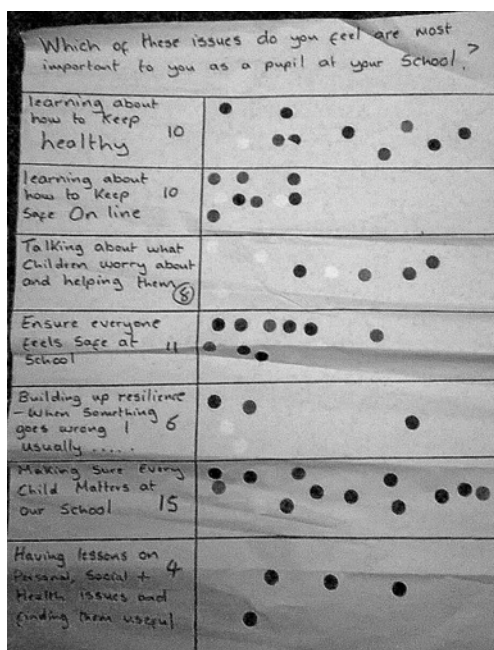 Which of these issues do you feel are most
important to you as a pupil at your School?
learning about
how to keep
healthy 10
learning about
how to keep 10
Safe On line
Talking about what
Children worry about
and helping them
8
Ensure everyone
feels Safe at
School 11
Building up resilience
- When Something
goes wrong I 6
usually .....
Making Sure Every
Child Matters at
our School 15
Having lessons on
Personal, Social + 4
Health issues and
finding them useful